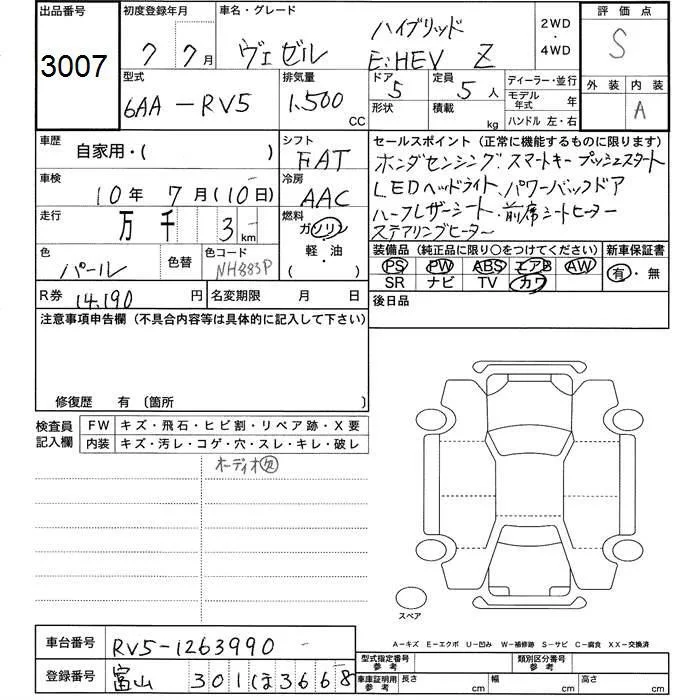 出品番号 3007
初度登録年月 7年7月
車名・グレード ヴェゼル ハイブリッド
E:HEV Z
2WD・4WD
評価点 S
外装 内装 A
型式 6AA-RV5
排気量 1,500 CC
ドア 5 形状
定員 5人 積載 kg
ディーラー・並行
モデル年式 年
ハンドル 左・右
車歴 自家用・( )
シフト FAT
車検 10年 7月(10日)
冷房 AAC
走行 万 千 3 km
燃料 ガソリン・軽・油 ( )
色 パール 色替 色コード NH883P
R券 14,190 円 名変期限 月 日
セールスポイント(正常に機能するものに限ります)
ホンダセンシング・スマートキー プッシュスタート
LEDヘッドライト、パワーバックドア
ハーフレザーシート・前席シートヒーター
ステアリングヒーター
装備品(純正品に限り〇をつけてください) 新車保証書
PS PW ABS エアB AW 有・無
SR ナビ TV カワ
後日品
注意事項申告欄(不具合内容等は具体的に記入して下さい)
修復歴 有(箇所 )
検査員記入欄
FW キズ・飛石・ヒビ割・リペア跡・X要
内装 キズ・汚レ・コゲ・穴・スレ・キレ・破レ
オーディオ欠
スペア
A-キズ E-エクボ U-凹み W-補修跡 S-サビ C-腐食 XX-交換済
車台番号 RV5-1263990
登録番号 富山 301 ほ 3668
型式指定番号 参考 類別区分番号 参考
車庫証明用 参考 長さ cm 幅 cm 高さ cm